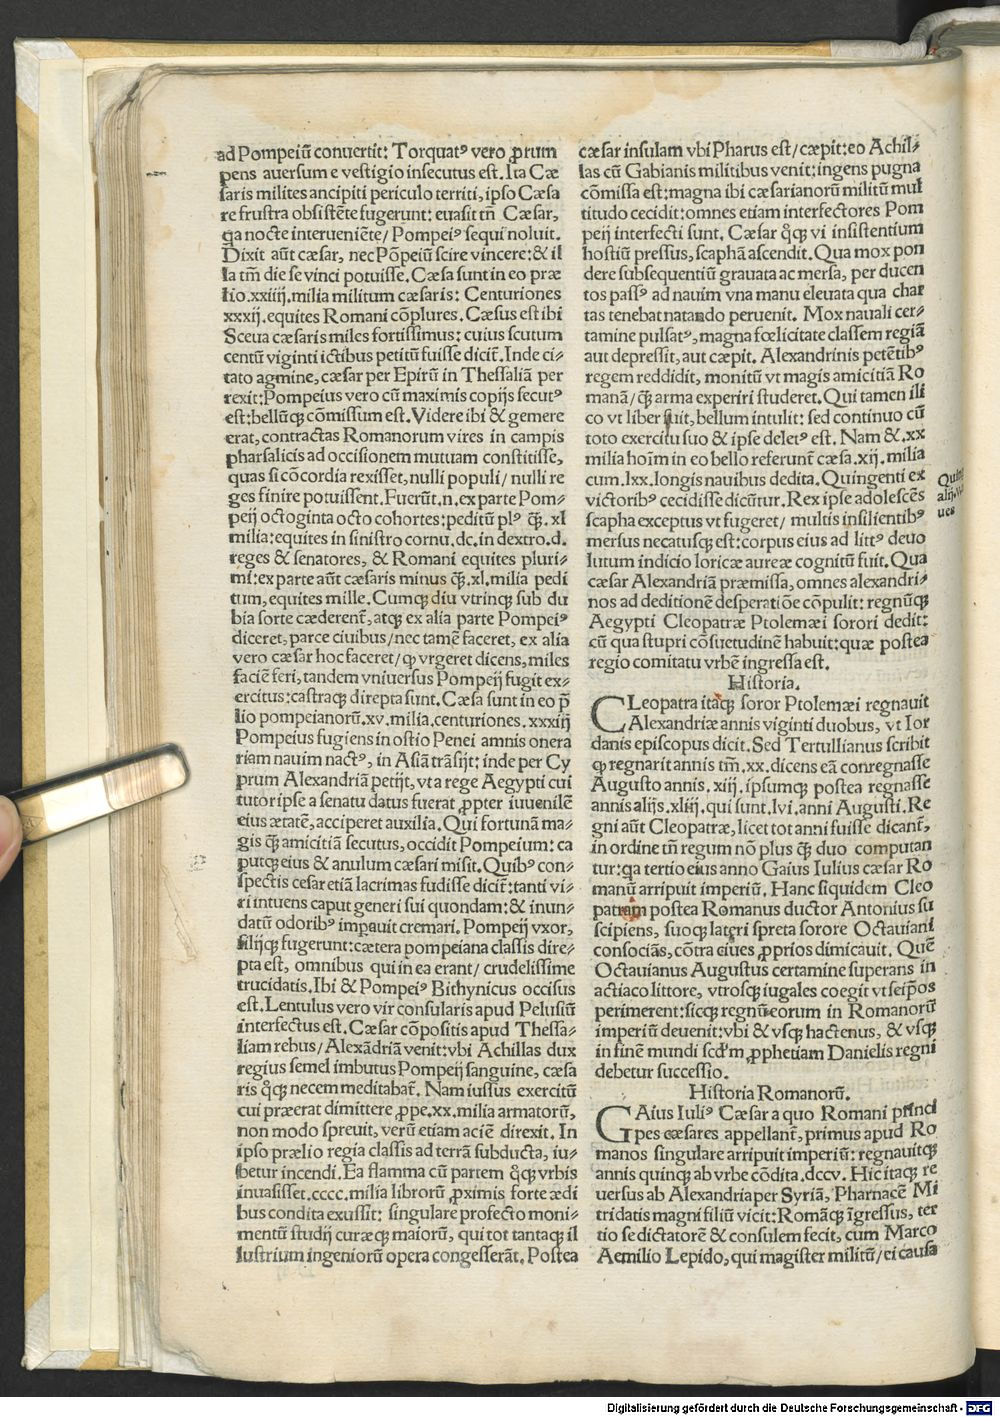 ad Pompeiū conuertit: Torquatꝰ vero ꝓrum
pens auersum e vestigio insecutus est. Ita Cæ
saris milites ancipiti periculo territi, ipso Cæsa
re frustra obsistēte fugerunt: euasit tñ Cæsar,
qa nocte interueniēte/ Pompeiꝰ sequi noluit.
Dixit aūt cæsar, nec Pōpeiū scire vincere: & il
la tm̄ die se vinci potuisse. Cæsa sunt in eo præ
lio .xxiiij. milia militum cæsaris: Centuriones
xxxij. equites Romani cōplures. Cæsus est ibi
Sceua cæsaris miles fortissimus: cuius scutum
centū viginti ictibus petitū fuisse dicit̄. Inde ci⸗
tato agmine, cæsar per Epirū in Thessaliā per
rexit: Pompeius vero cū maximis copijs secutꝰ
est: bellūqꝫ cōmissum est. Videre ibi & gemere
erat, contractas Romanorum vires in campis
pharsalicis ad occisionem mutuam constitisse,
quas si cōcordia rexisset, nulli populi/ nulli re
ges finire potuissent. Fuerūt .n. ex parte Pom⸗
peij octoginta octo cohortes: peditū plꝰ q̄ꝫ. xl
milia: equites in sinistro cornu .dc. in dextro .d.
reges & senatores, & Romani equites pluri⸗
mi: ex parte aūt cæsaris minus q̄ꝫ .xl. milia pedi
tum, equites mille. Cumqꝫ diu vtrinqꝫ sub du
bia sorte cæderent̄, atqꝫ ex alia parte Pompeiꝰ
diceret, parce ciuibus/ nec tamē faceret, ex alia
vero cæsar hoc faceret/ qꝫ vrgeret dicens, miles
faciē feri, tandem vniuersus Pompeij fugit ex⸗
ercitus: castraqꝫ direpta sunt. Cæsa sunt in eo p̄
lio pompeianorū .xv. milia, centuriones. xxxiij
Pompeius fugiens in ostio Penei amnis onera
riam nauim nactꝰ, in Asiā trāsijt: inde per Cy
prum Alexandriā petijt, vt a rege Aegypti cui
tutor ipse a senatu datus fuerat ꝓpter iuuenilē
eius ætatē, acciperet auxilia. Qui fortunā ma⸗
gis q̄ꝫ amicitiā secutus, occidit Pompeium: ca
putqꝫ eius & anulum cæsari misit. Quibꝰ con⸗
spectis cesar etiā lacrimas fudisse dicit̄: tanti vi⸗
ri intuens caput generi sui quondam: & inun⸗
datū odoribꝰ impauit cremari. Pompeij vxor,
filijqꝫ fugerunt: cætera pompeiana classis dire⸗
pta est, omnibus qui in ea erant/ crudelissime
trucidatis. Ibi & Pompeiꝰ Bithynicus occisus
est. Lentulus vero vir consularis apud Pelusiū
interfectus est. Cæsar cōpositis apud Thessa⸗
liam rebus/ Alexādriā venit: vbi Achillas dux
regius semel imbutus Pompeij sanguine, cæsa
ris qꝫqꝫ necem meditabat̄. Nam iussus exercitū
cui præerat dimittere ꝓpe .xx. milia armatorū,
non modo spreuit, verū etiam aciē direxit. In
ipso prælio regia classis ad terrā subducta, iu⸗
betur incendi. Ea flamma cū partem qꝫqꝫ vrbis
inuasisset .cccc. milia librorū ꝓximis forte ædi
bus condita exussit: singulare profecto moni⸗
mentū studij curæqꝫ maiorū, qui tot tantaqꝫ il
lustrium ingeniorū opera congesserāt. Postea
cæsar insulam vbi Pharus est/ cæpit: eo Achil⸗
las cū Gabianis militibus venit: ingens pugna
cōmissa est: magna ibi cæsarianorū militū mul
titudo cecidit: omnes etiam interfectores Pom
peij interfecti sunt. Cæsar qꝫqꝫ vi insistentium
hostiū pressus, scaphā ascendit. Qua mox pon
dere subsequentiū grauata ac mersa, per ducen
tos passꝰ ad nauim vna manu eleuata qua char
tas tenebat natando peruenit. Mox nauali cer⸗
tamine pulsatꝰ, magna fœlicitate classem regiā
aut depressit, aut cæpit. Alexandrinis petētibꝰ
regem reddidit, monitū vt magis amicitiā Ro
manā/ qꝫ arma experiri studeret. Qui tamen ili
co vt liber fuit, bellum intulit: sed continuo cū
toto exercitu suo & ipse deletꝰ est. Nam &. xx
milia hoīm in eo bello referunt̄ cæsa .xij. milia
cum .lxx. longis nauibus dedita. Quingenti ex
victoribꝰ cecidisse dicūtur. Rex ipse adolescēs
scapha exceptus vt fugeret/ multis insilientibꝰ
mersus necatusqꝫ est: corpus eius ad littꝰ deuo
lutum indicio loricæ aureæ cognitū fuit. Qua
cæsar Alexandriā præmissa, omnes alexandri⸗
nos ad deditionē desperatiōe cōpulit: regnūqꝫ
Aegypti Cleopatræ Ptolemæi sorori dedit:
cū qua stupri cōsuetudinē habuit: quæ postea
regio comitatu vrbē ingressa est.
Historia.
CLeopatra itaqꝫ soror Ptolemæi regnauit
Alexandriæ annis viginti duobus, vt Ior
danis episcopus dicit. Sed Tertullianus scribit
qꝫ regnarit annis tm̄ .xx. dicens eā conregnasse
Augusto annis. xiij. ipsumqꝫ postea regnasse
annis alijs .xliij. qui sunt .lvi. anni Augusti. Re
gni aūt Cleopatræ, licet tot anni fuisse dicant̄,
in ordine tñ regum nō plus q̄ꝫ duo computan
tur: qa tertio eius anno Gaius Iulius cæsar Ro
manū arripuit imperiū. Hanc siquidem Cleo
patram postea Romanus ductor Antonius su
scipiens, suoqꝫ lateri spreta sorore Octauiani
consociās, cōtra ciues ꝓprios dimicauit. Quē
Octauianus Augustus certamine superans in
actiaco littore, vtrosqꝫ iugales coegit vt seip̄os
perimerent: sicqꝫ regnū eorum in Romanorū
imperiū deuenit: vbi & vsqꝫ hactenus, & vsqꝫ
in finē mundi scd'm ꝓphetiam Danielis regni
debetur successio.
Historia Romanorū.
GAius Iuliꝰ Cæsar a quo Romani princi
pes cæsares appellant̄, primus apud Ro
manos singulare arripuit imperiū: regnauitqꝫ
annis quinqꝫ ab vrbe cōdita .dccv. Hic itaqꝫ re
uersus ab Alexandria per Syriā, Pharnacē Mi
tridatis magni filiū vicit: Romāqꝫ īgressus, ter
tio se dictatorē & consulem fecit, cum Marco
Aemilio Lepido, qui magister militū/ ei causa
ues
Digitalisierung gefördert durch die Deutsche Forschungsgemeinschaft - DFG